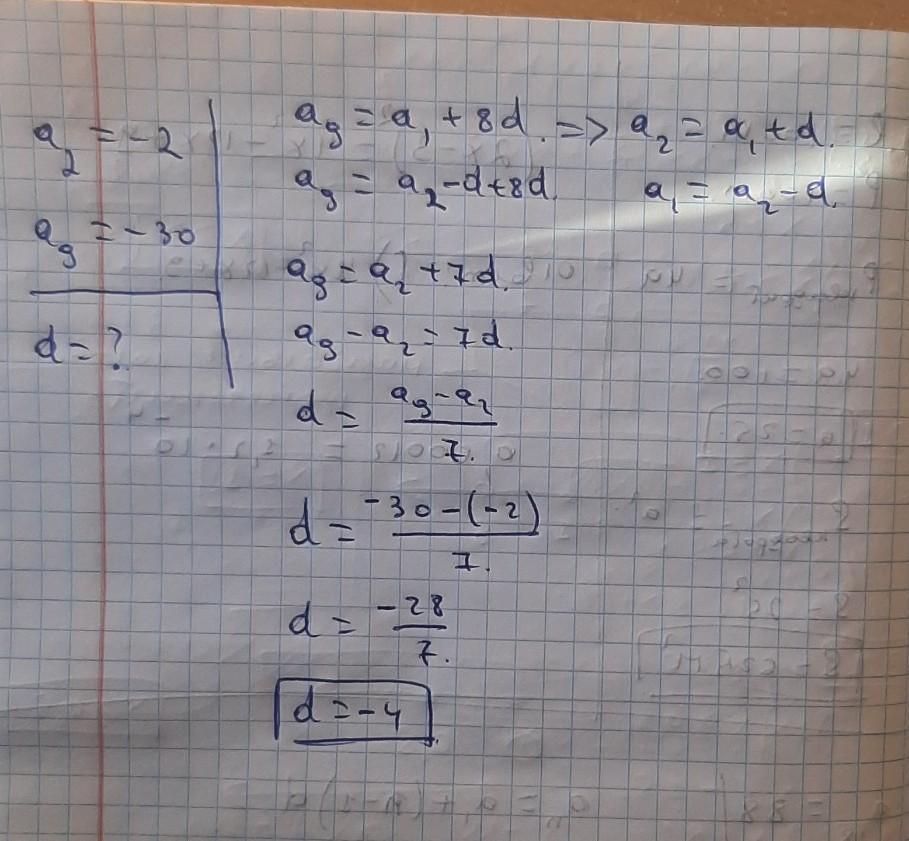 a₂ = -2
a₉ = -30
d = ?
a₉ = a₁ + 8d. => a₂ = a₁ + d.
a₉ = a₂ - d + 8d. a₁ = a₂ - d.
a₉ = a₂ + 7d.
a₉ - a₂ = 7d.
d = (a₉ - a₂) / 7.
d = (-30 - (-2)) / 7.
d = -28 / 7.
d = -4